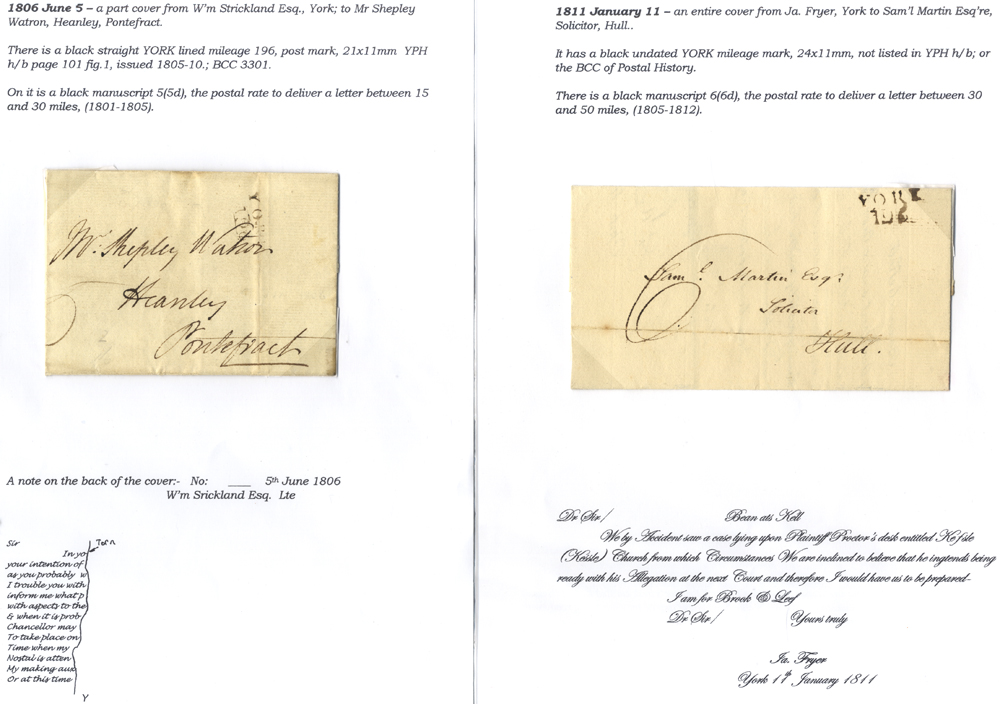 1806 June 5 – a part cover from W'm Strickland Esq., York; to Mr Shepley
Watron, Heanley, Pontefract.
There is a black straight YORK lined mileage 196, post mark, 21x11mm YPH
h/b page 101 fig.1, issued 1805-10.; BCC 3301.
On it is a black manuscript 5(5d), the postal rate to deliver a letter between 15
and 30 miles, (1801-1805).
Mr. Shepley Watson
Heanley
Pontefract
A note on the back of the cover:- No: ___ 5th June 1806
W'm Srickland Esq. Lte
Sir
Torn
In yo
your intention of
as you probably w
I trouble you with
inform me what p
with aspects to the
& when it is prob
Chancellor may
To take place on
Time when my
Nostal is atten
My making aux
Or at this time
Y
1811 January 11 – an entire cover from Ja. Fryer, York to Sam'l Martin Esq're,
Solicitor, Hull..
It has a black undated YORK mileage mark, 24x11mm, not listed in YPH h/b; or
the BCC of Postal History.
There is a black manuscript 6(6d), the postal rate to deliver a letter between 30
and 50 miles, (1805-1812).
YORK
6
Saml. Martin Esqr
Solicitor
Hull.
Dr Sir/ Bean ats Kell
We by Accident saw a case lying upon Plaintiff Proctor's desk entitled Kefsle
(Kessle) Church from which Circumstances We are inclined to believe that he ingtends being
ready with his Allegation at the next Court and therefore I would have us to be prepared-
I am for Brook & Leef
Dr Sir/ Yours truly
Ja. Fryer
York 11th January 1811